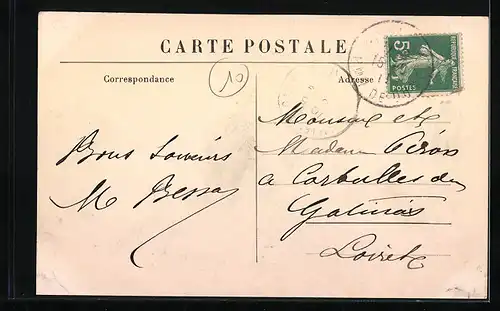 CARTE POSTALE
Correspondance
Adresse
10
5
POSTES
REPUBLIQUE FRANÇAISE
Bons Souvenirs
Monsieur et
Madame
a Corbeilles du
Gatinais
Loiret